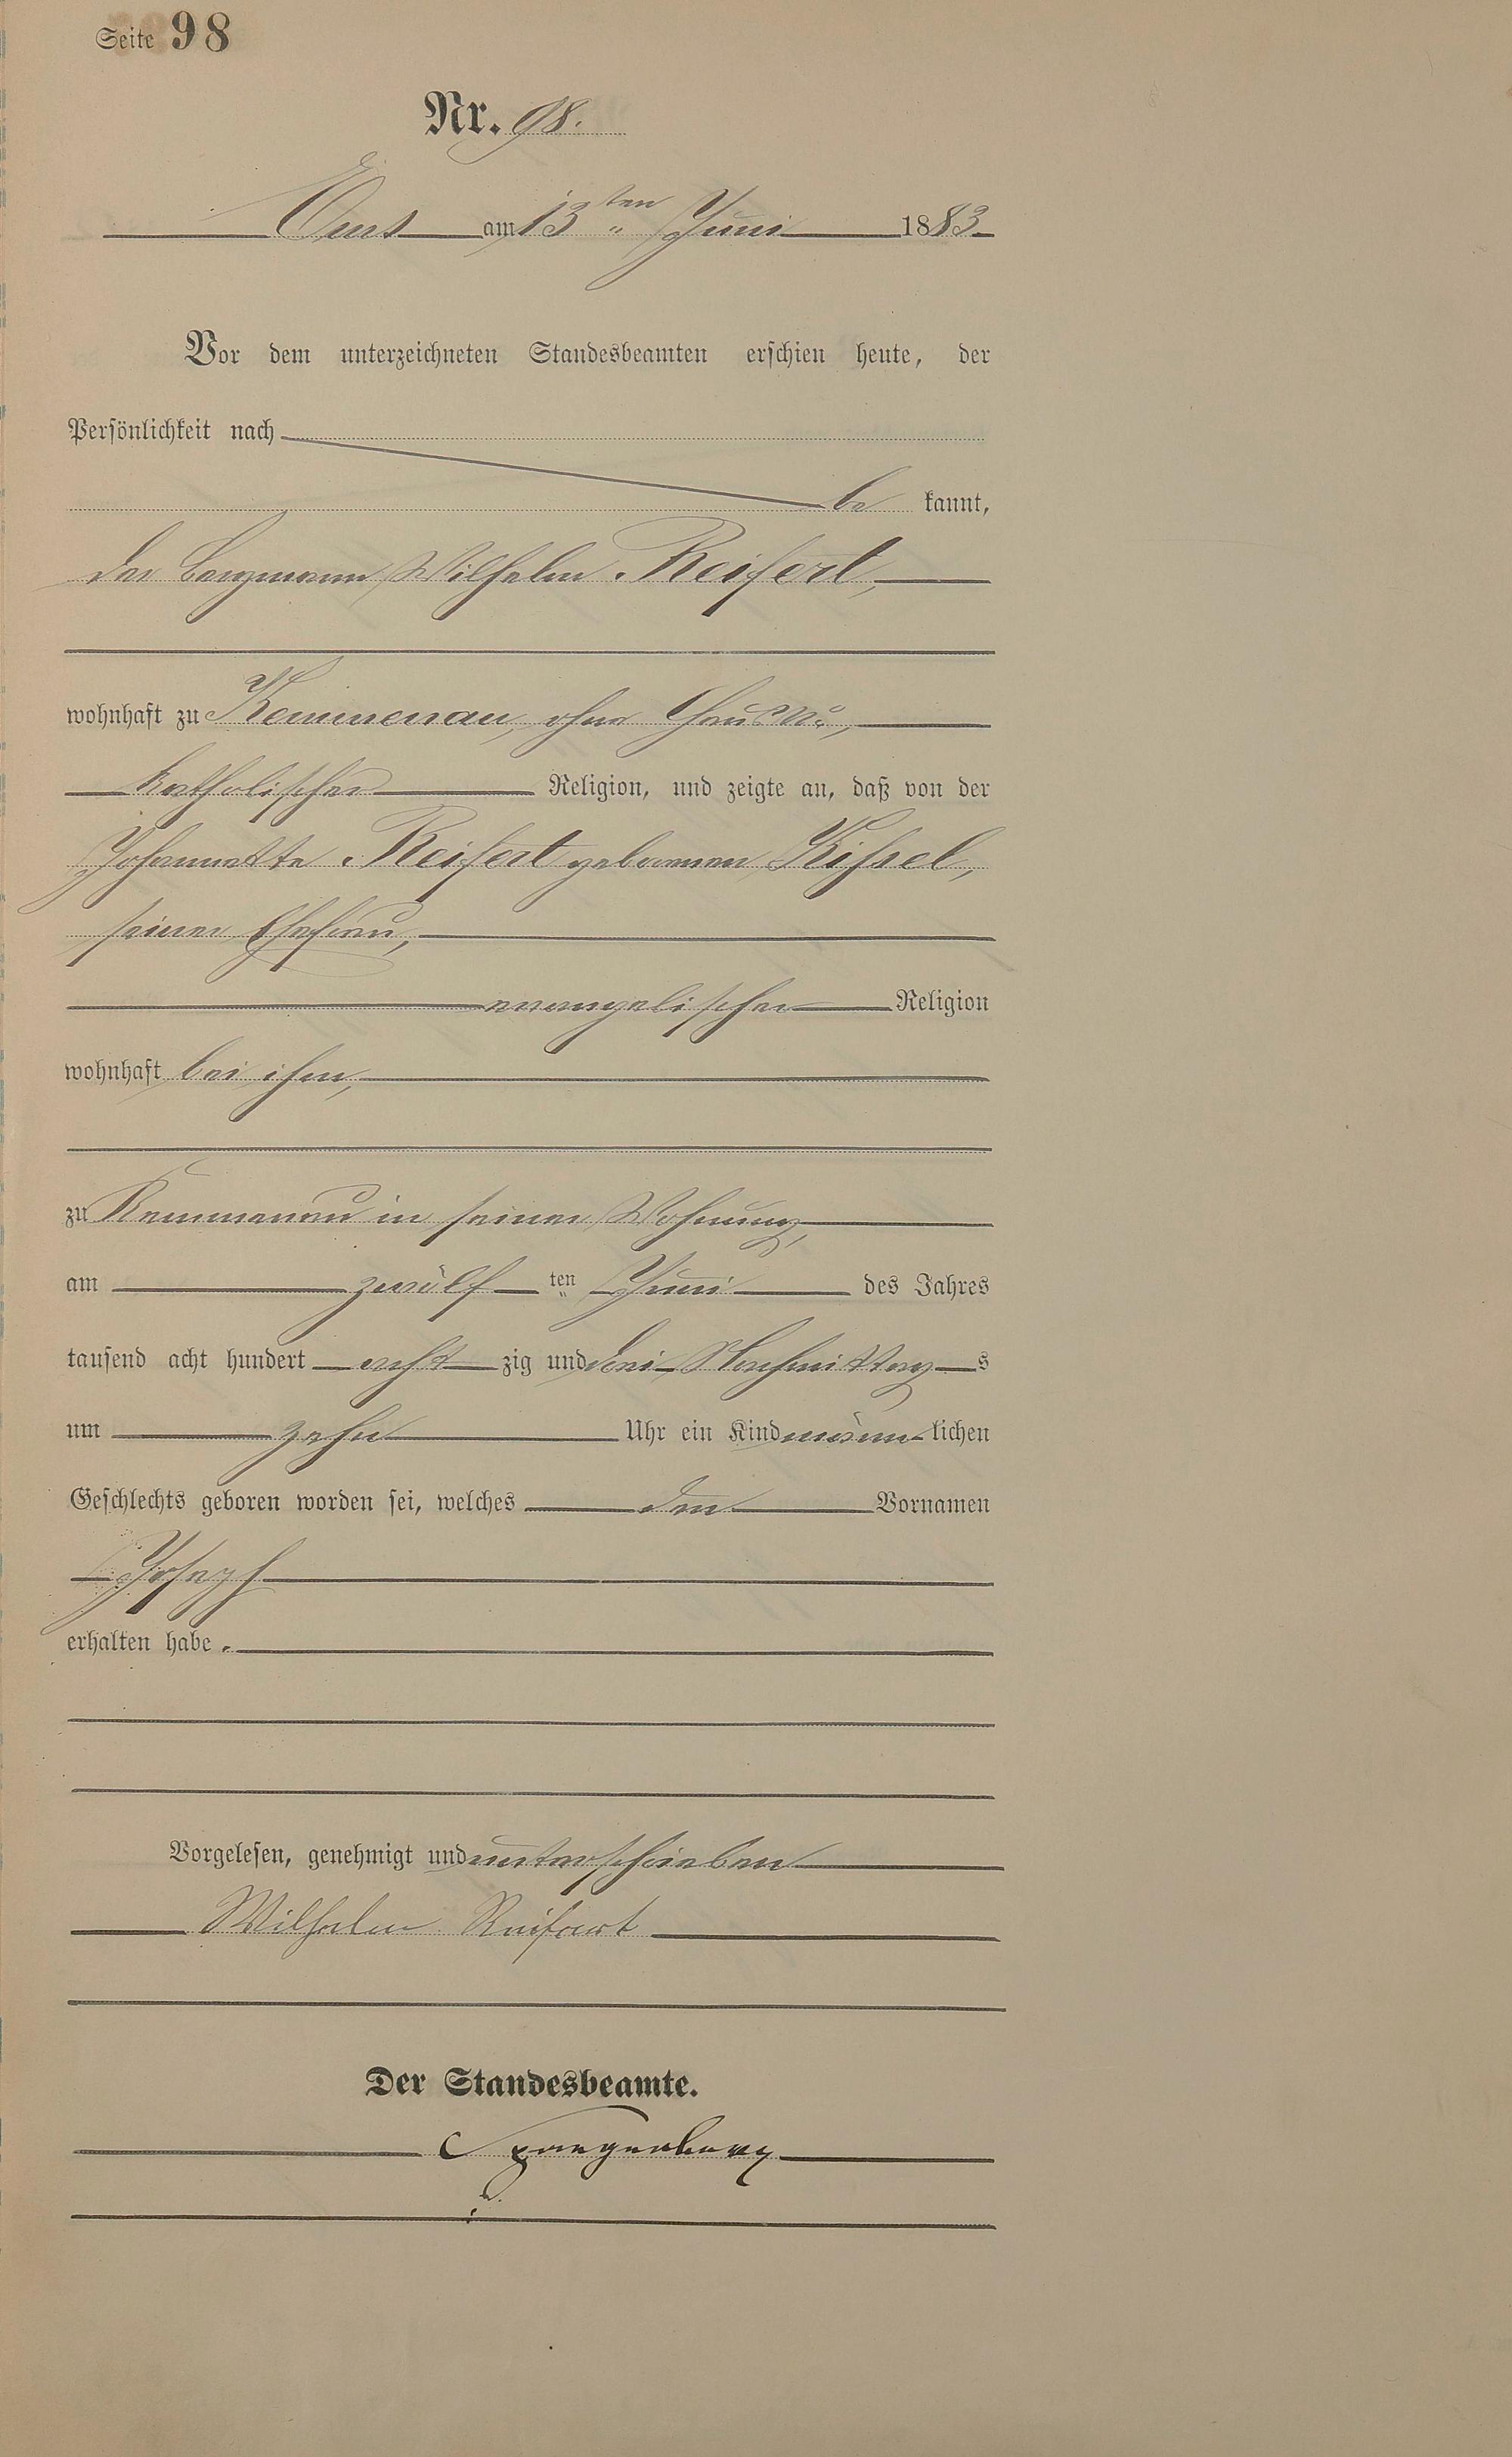 Seite 98
Nr. 98.
Ems am 13ten Juni 1883
Vor dem unterzeichneten Standesbeamten erschien heute, der
Persönlichkeit nach
be kannt,
der Bergmann Wilhelm Reifert,
wohnhaft zu Kemmenau, ohne Haus No.,
katholischer Religion, und zeigte an, daß von der
Johannette Reifert geborenen Kissel,
seiner Ehefrau,
evangelischer Religion
wohnhaft bei ihm,
zu Kemmenau in seiner Wohnung,
am zwölf ten Juni des Jahres
tausend acht hundert acht zig und drei Nachmittag s
um zehn Uhr ein Kind männ lichen
Geschlechts geboren worden sei, welches den Vornamen
Joseph
erhalten habe.
Vorgelesen, genehmigt und unterschrieben
Wilhelm Reifert
Der Standesbeamte.
Spangenberg